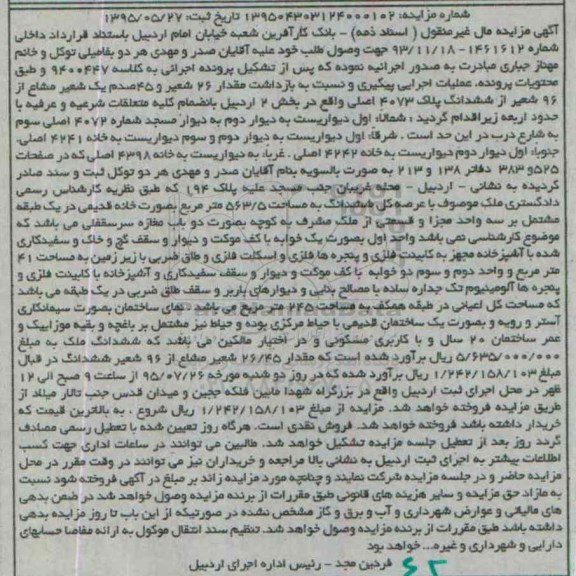 شماره مزایده: ۱۳۹۵۰۴۳۰۳۱۲۴۰۰۰۱۰۲ تاریخ ثبت: ۱۳۹۵/۰۵/۲۷
آگهی مزایده مال غیرمنقول ( اسناد ذمه) - بانک کارآفرین شعبه خیابان امام اردبیل باستناد قرارداد داخلی
شماره ۱۴۶۱۶۱۲-۹۳/۱۱/۱۸ جهت وصول طلب خود علیه آقایان صدر و مهدی هر دو بفامیلی توکل و خانم
مهناز جباری مبادرت به صدور اجرائیه نموده که پس از تشکیل پرونده اجرائی به کلاسه ۹۴۰۰۴۴۷ و طبق
محتویات پرونده، عملیات اجرایی پیگیری و نسبت به بازداشت مقدار ۲۶ شعیر و ۴۵صدم یک شعیر مشاع از
۹۶ شعیر از ششدانگ پلاک ۴۰۷۳ اصلی واقع در بخش ۲ اردبیل بانضمام کلیه متعلقات شرعیه و عرفیه با
حدود اربعه زیراقدام گردید : شمالا: اول دیواریست به دیوار دوم به دیوار مسجد شماره ۴۰۷۲ اصلی سوم
به شارع درب در این حد است . شرقا: اول دیواریست به دیوار دوم و سوم دیواریست به خانه ۴۲۴۱ اصلی.
جنوبا: اول دیوار دوم دیواریست به خانه ۴۲۴۲ اصلی . غربا: به دیواریست به خانه ۴۳۹۸ اصلی که در صفحات
۵۲۵و ۳۸۳ دفاتر ۱۳۸ و ۲۱۳ به صورت بالسویه بنام آقایان صدر و مهدی هر دو توکل ثبت و سند صادر
گردیده به نشانی - اردبیل - محله عباسیان جنب مسجد علیه پلاک ۱۹۴ که طبق نظریه کارشناس رسمی
دادگستری ملک موصوف با عرصه کل ششدانگ به مساحت ۵۶۳/۵ متر مربع بصورت خانه قدیمی در یک طبقه
مشتمل بر سه واحد مجزا و قسمتی از ملک مشرف به کوچه بصورت دو باب مغازه سرسقفلی می باشد که
موضوع کارشناسی نمی باشد واحد اول بصورت یک خوابه با کف موکت و دیوار و سقف گچ و خاک و سفیدکاری
شده با آشپزخانه مجهز به کابینت فلزی و پنجره ها فلزی و اسکلت فلزی و طاق ضربی با زیر زمین به مساحت ۴۱
متر مربع و واحد دوم و سوم دو خوابه با کف موکت و دیوار و سقف سفیدکاری و آشپزخانه با کابینت فلزی و
پنجره ها آلومینیوم تک جداره ساده با مصالح بنایی و دیوارهای باربر و سقف طاق ضربی در یک طبقه می باشد
که مساحت کل اعیانی در طبقه همکف به مساحت ۲۴۵ متر مربع می باشد . نمای ساختمان بصورت سیمانکاری
آستر و رویه و بصورت یک ساختمان قدیمی با حیاط مرکزی بوده و حیاط نیز مشتمل بر باغچه و بقیه موزاییک و
عمر ساختمان ۲۰ سال و با کاربری مسکونی و در اختیار مالکین می باشد که ششدانگ ملک به مبلغ
۵/۶۳۵/۰۰۰/۰۰۰ ریال برآورد شده است که مقدار ۲۶/۴۵ شعیر مشاع از ۹۶ شعیر ششدانگ در قبال
مبلغ ۱/۲۴۲/۱۵۸/۱۰۳ ریال برآورد شده که در روز دو شنبه مورخه ۹۵/۰۷/۲۶ از ساعت ۹ صبح الی ۱۲
ظهر در محل اجرای ثبت اردبیل واقع در بزرگراه شهدا مابین فلکه ججین و میدان قدس جنب تالار میلاد از
طریق مزایده فروخته خواهد شد. مزایده از مبلغ ۱/۲۴۲/۱۵۸/۱۰۳ ریال شروع ، به بالاترین قیمت که
خریدار داشته باشد فروخته خواهد شد. فروش نقدی است. هرگاه روز تعیین شده با تعطیل رسمی مصادف
گردد روز بعد از تعطیل جلسه مزایده تشکیل خواهد شد. طالبین می توانند در ساعات اداری جهت کسب
اطلاعات بیشتر به اجرای ثبت اردبیل به نشانی بالا مراجعه و خریداران نیز می توانند در وقت مقرر در محل
مزایده حاضر و در جلسه مزایده شرکت نمایند و چنانچه مورد مزایده زائد بر مبلغ در آگهی فروخته شود نسبت
به مازاد حق مزایده و سایر هزینه های قانونی طبق مقررات از برنده مزایده وصول خواهد شد در ضمن بدهی
های مالیاتی و عوارض شهرداری و آب و برق و گاز مشخص نشده در صورتیکه از این باب تا روز مزایده بدهی
داشته باشد طبق مقررات از برنده مزایده وصول خواهد شد. تنظیم سند انتقال موکول به ارائه مفاصا حسابهای
دارایی و شهرداری و غیره... خواهد بود
فردین مجد - رئیس اداره اجرای اردبیل
۶۲